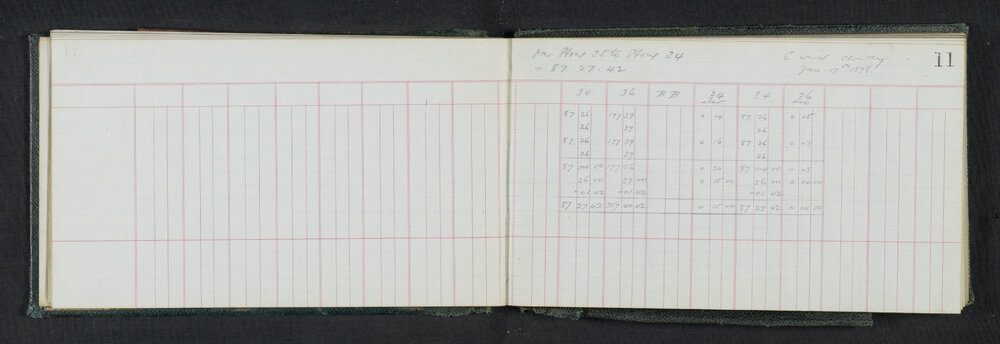 on Stone 36 to Stone 34
E wind cloudy
11
= 87.27.42
Jan 17th 1898
34 36 BB 34 34 36
elev
87 26 177 39 0 14 87 26 0 05
26 39 26
87 26 177 39 0 16 87 26 0 03
26 39 26
87 104 00 177 156 0 30 87 104 00 0 08
26 00 39 00 0 15 00 26 00 0 04 00
+01 42 +01 42 +01 42
87 27 42 357 40 42 0 15 00 87 27 42 0 04 00